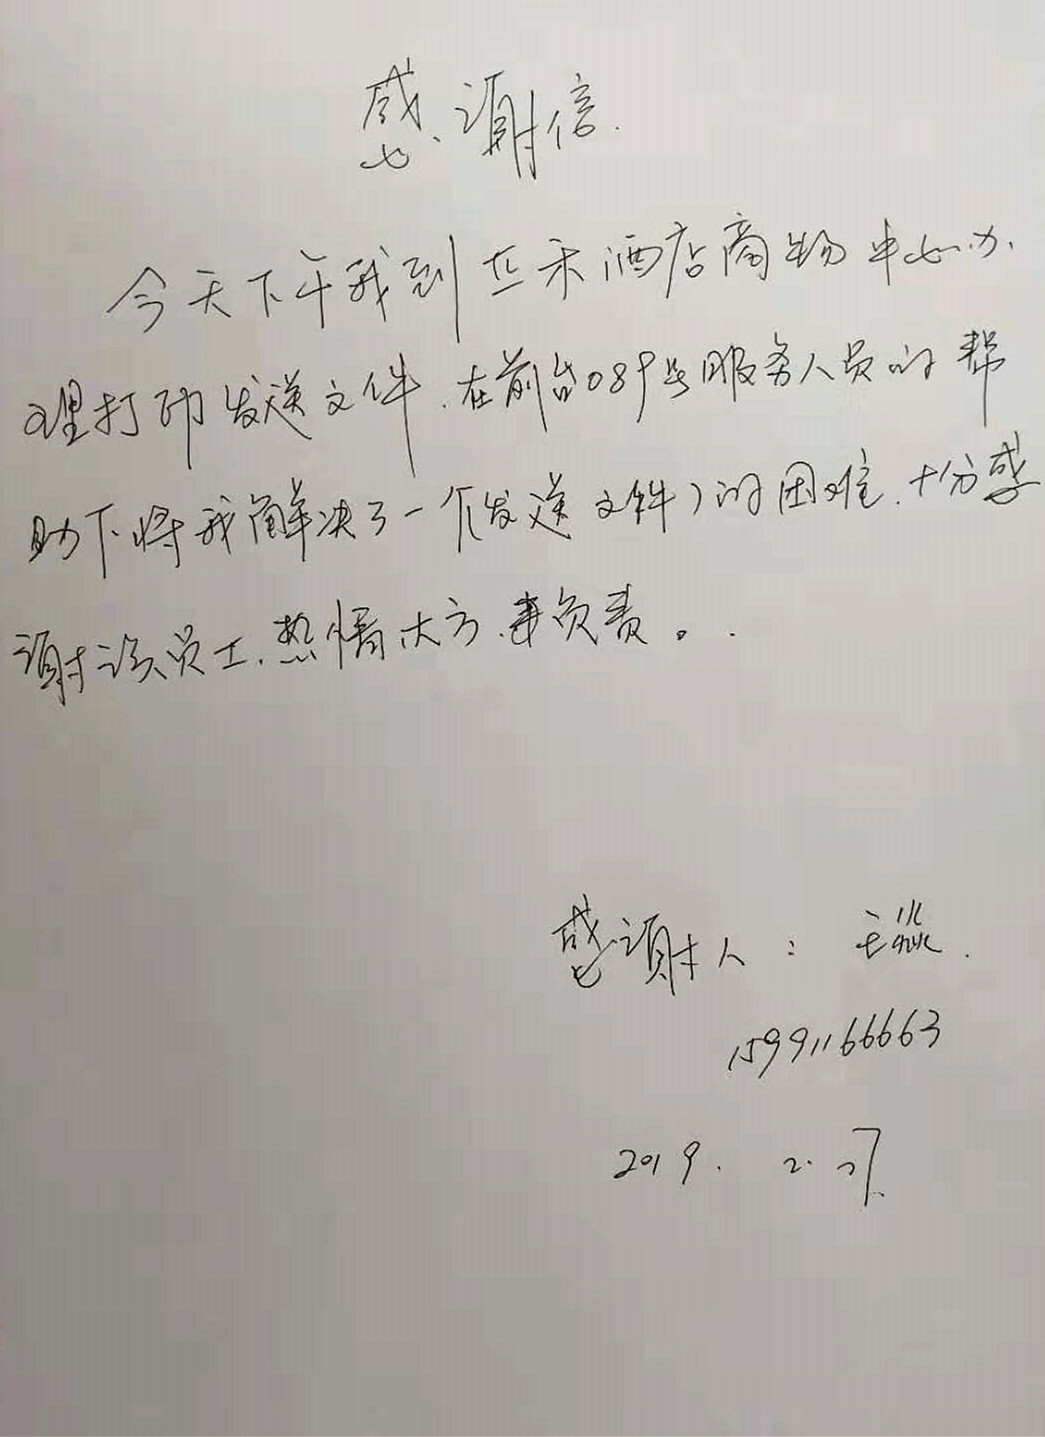 感谢信
今天下午我到亚朵酒店商物中心办
理打印发送文件.在前台089号服务人员的帮
助下将我解决了一个(发送文件)的困难.十分感
谢该员工.热情大方.事负责。
感谢人:
15991166663
2019. 2. 27